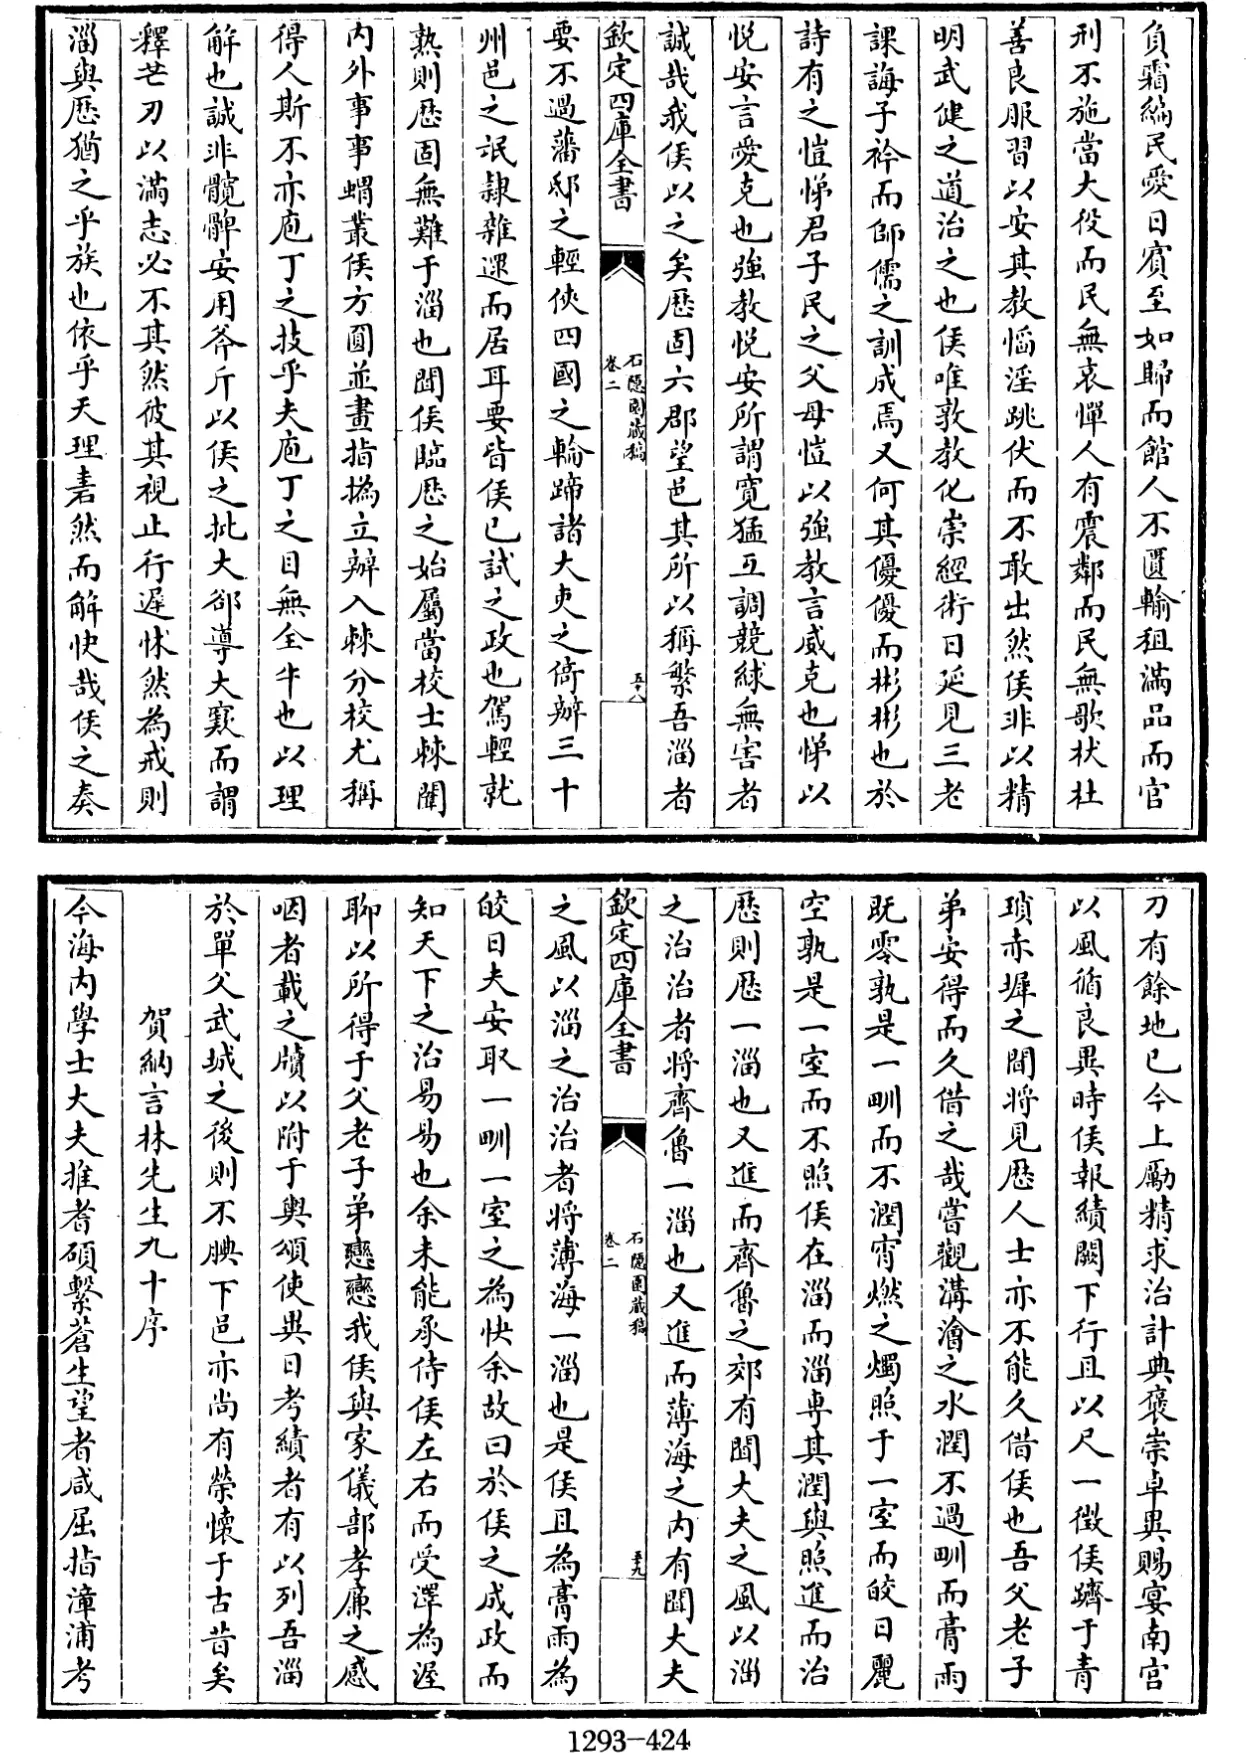 負霜編民愛日賓至如歸而館人不匱輸租滿品而官
刑不施當大役而民無哀憚人有震鄰而民無歌杕杜
善良服習以安其教慆淫跳伏而不敢出然侯非以精
明武健之道治之也侯唯敦教化崇經術日延見三老
課誨子衿而師儒之訓成焉又何其優優而彬彬也於
詩有之愷悌君子民之父母愷以強教言威克也悌以
悦安言愛克也強教悦安所謂寛猛互調競絿無害者
誠哉我侯以之矣歴固六郡望邑其所以稱繁吾淄者
欽定四庫全書
石隱園藏稿
卷二
五十八
要不過藩邸之輕俠四國之輪蹄諸大吏之倚辦三十
州邑之氓隷雜遝而居耳要皆侯已試之政也駕輕就
熟則歴固無難于淄也聞侯臨歴之始屬當校士棘闈
内外事事蝟叢侯方圓並畫指撝立辦入棘分校尤稱
得人斯不亦庖丁之技乎夫庖丁之目無全牛也以理
解也誠非髖髀安用斧斤以侯之批大郤導大窾而謂
釋芒刃以滿志必不其然彼其視止行遲怵然為戒則
淄與歴猶之乎族也依乎天理砉然而解快哉侯之奏
刀有餘地已今上勵精求治計典褒崇卓異賜宴南宫
以風循良異時侯報績闕下行且以尺一徴侯躋于青
瑣赤墀之間將見歴人士亦不能久借侯也吾父老子
弟安得而久借之哉嘗觀溝澮之水潤不過甽而膏雨
既零孰是一甽而不潤宵燃之燭照于一室而皎日麗
空孰是一室而不照侯在淄而淄専其潤與照進而治
歴則歴一淄也又進而齊魯之郊有聞大夫之風以淄
之治治者將齊魯一淄也又進而薄海之内有聞大夫
欽定四庫全書
石隱園藏稿
卷二
五十九
之風以淄之治治者將薄海一淄也是侯且為膏雨為
皎日夫安取一甽一室之為快余故曰於侯之成政而
知天下之治易易也余未能承侍侯左右而受澤為渥
聊以所得于父老子弟戀戀我侯與家儀部孝廉之感
咽者載之牘以附于輿頌使異日考績者有以列吾淄
於單父武城之後則不腆下邑亦尚有榮懐于古昔矣
賀納言林先生九十序
今海内學士大夫推耆碩繫蒼生望者咸屈指漳浦考
1293-424